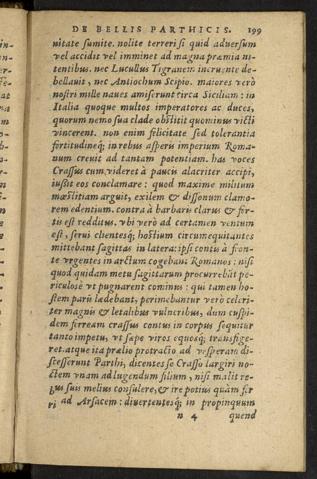 DE BELLIS PARTHICIS. 199
nitate sumite. nolite terreri si quid aduersum
vel accidit vel imminet ad magna præmia ni-
tentibus. nec Lucullus Tigranem incruente de-
bellauit, nec Antiochum Scipio. maiores verò
nostri mille naues amiserunt circa Siciliam: in
Italia quoque multos imperatores ac duces,
quorum nemo sua clade obstitit quominus victi
vincerent. non enim felicitate sed tolerantia
fortitudineq́; in rebus asperis imperium Roma-
num creuit ad tantam potentiam. has voces
Crassus cum videret à paucis alacriter accipi,
iussit eos conclamare: quod maxime militum
mæstitiam arguit, exilem & dissonum clamo-
rem edentium. contra à barbaris clarus & for-
tis est redditus. vbi verò ad certamen ventum
est, serui clientesq́; hostium circumequitantes
mittebant sagittas in latera: ipsi contis à fron-
te vrgentes in arctum cogebant Romanos: nisi
quod quidam metu sagittarum procurrebãt pe-
riculosè vt pugnarent cominus: qui tamen ho-
stem parũ lædebant, perimebantur verò celeri-
ter magnis & letalibus vulneribus, dum cuspi-
dem ferream crassus contus in corpus sequitur
tanto impetu, vt sæpe viros equosq́; transfige-
ret. atque ita prælio protracto ad vesperam di-
scesserunt Parthi, dicentes se Crasso largiri no-
ctem vnam ad lugendum filium, nisi malit re-
bus suis melius consulere, & ire potius quàm fer
ri ad Arsacem: diuertentesq́; in propinquum
n 4 quend